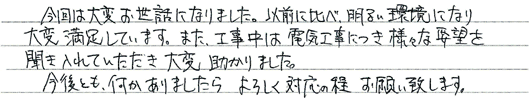 今回は大変お世話になりました。以前に比べ、明るい環境になり
大変満足しています。また、工事中は電気工事につき様々な要望を
聞き入れていただき大変助かりました。
今後とも、何かありましたらよろしく対応の程お願い致します。